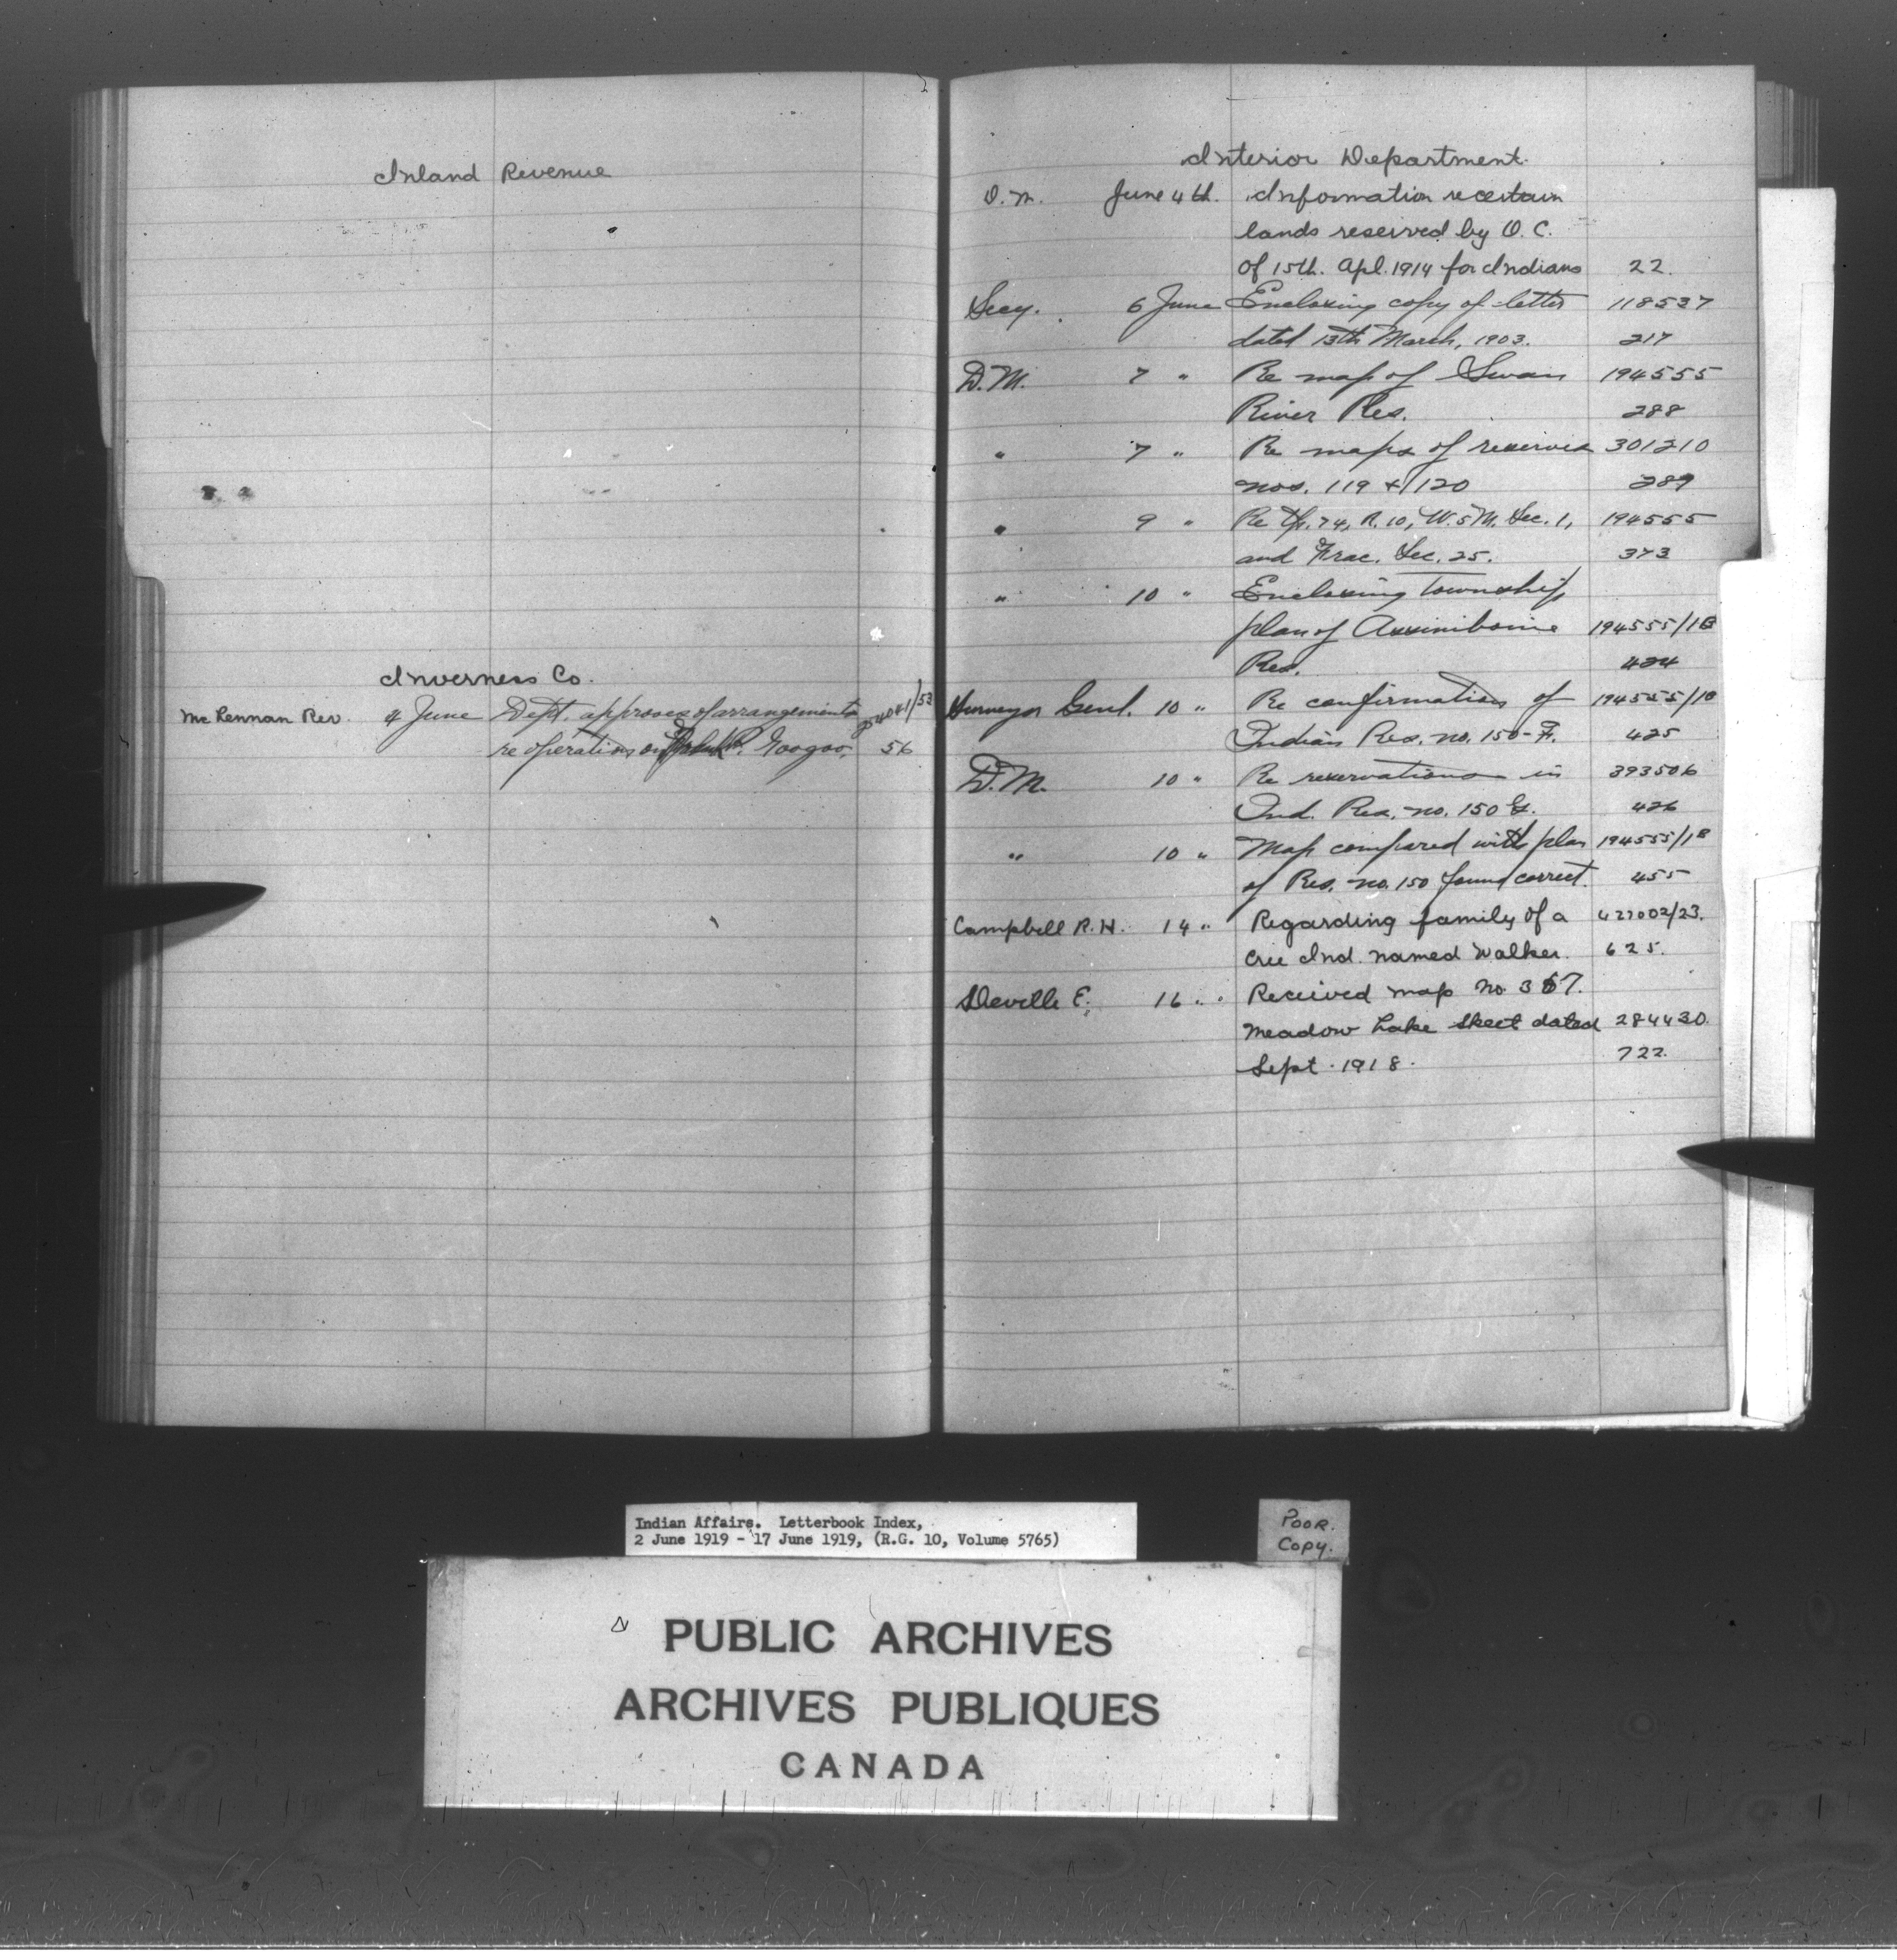 Inland Revenue
Inverness Co.
McLennan Rev. 4 June Dept. approves of arrangements 254041/53
re operation on R. Googoo. 56
Interior Department.
D.M. June 4th. Information re certain
lands reserved by O.C.
of 15th. Apl. 1914 for Indians 22.
Secy. 6 June Enclosing copy of letter 118537
dated 13th March, 1903. 217
D.M. 7 " Re map of Swan 194555
River Res. 288
" 7 " Re maps of reserves 301210
nos. 119 & 120 289
" 9 " Re Tp. 74, R. 10, W. 5 M. Sec. 1, 194555
and Frac. Sec. 25. 373
" 10 " Enclosing township
plan of Assiniboine 194555/1B
Res. 424
Surveyor Genl. 10 " Re confirmation of 194555/1B
Indian Res. no. 150-F. 425
D.M. 10 " Re reservations in 393506
Ind. Res. no. 150 G. 426
" 10 " Map compared with plan 194555/1B
of Res. no. 150 found correct. 455
Campbell R.H. 14 " Regarding family of a 427002/23.
Cree Ind. named Walker. 625.
Deville E. 16 " Received map No. 367.
Meadow Lake Sheet dated 284430.
Sept. 1918. 722.
Indian Affairs. Letterbook Index,
2 June 1919 - 17 June 1919, (R.G. 10, Volume 5765)
Poor.
Copy.
PUBLIC ARCHIVES
ARCHIVES PUBLIQUES
CANADA